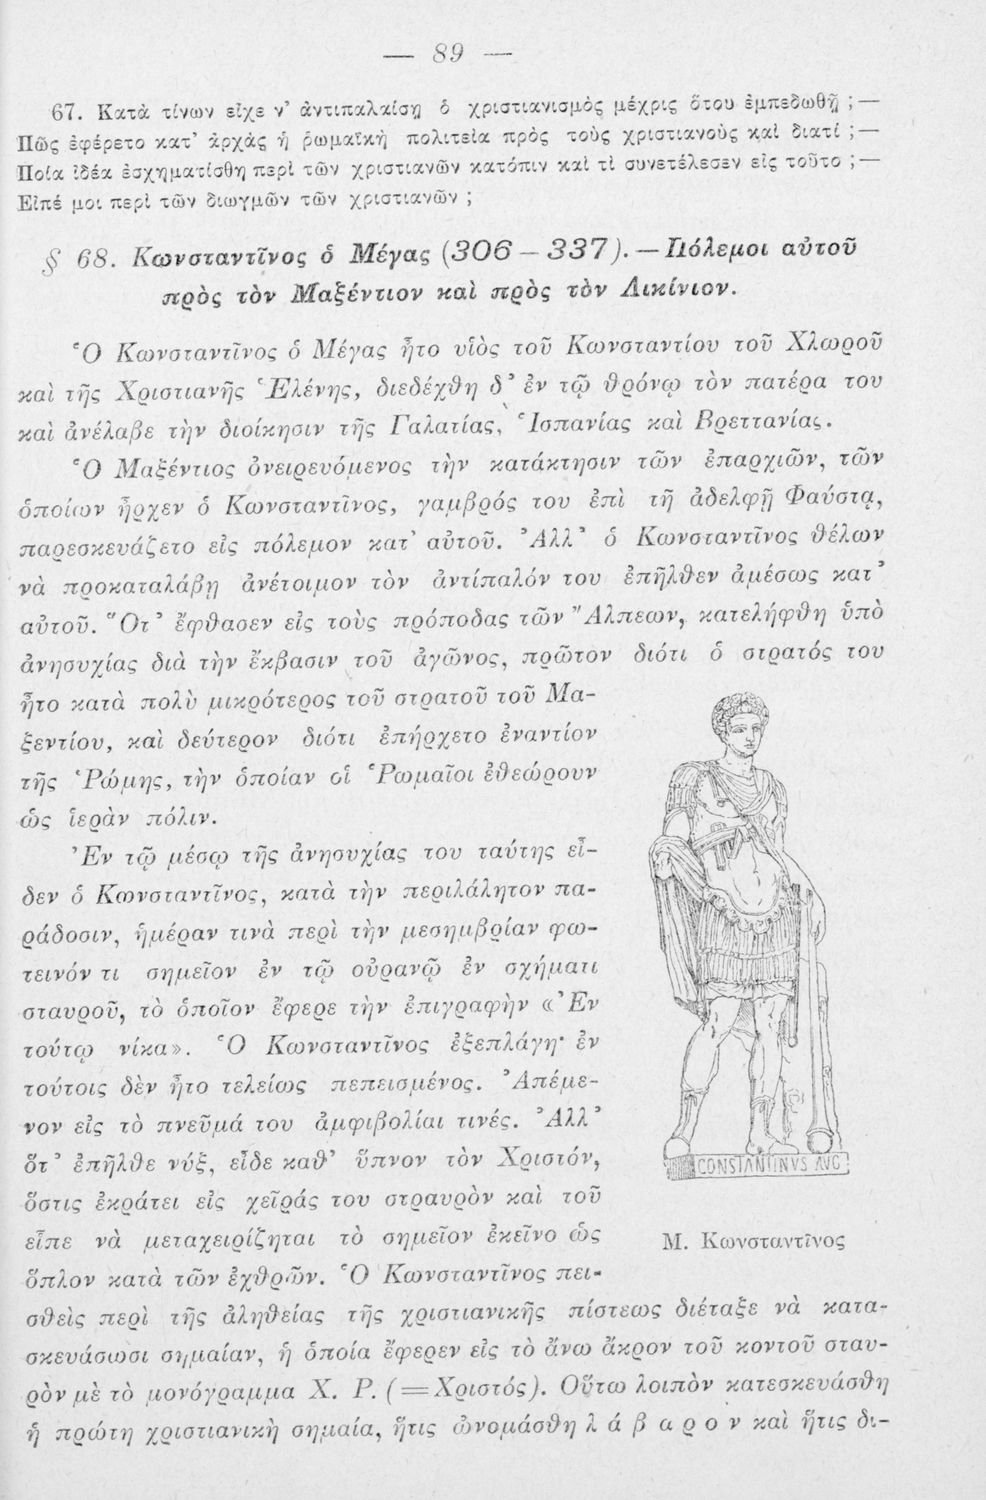 — 89 —
67. Κατὰ τίνων εἶχε ν' ἀντιπαλαίσῃ ὁ χριστιανισμὸς μέχρις ὅτου ἐμπεδωθῇ ; —
Πῶς ἐφέρετο κατ' ἀρχὰς ἡ ῥωμαϊκὴ πολιτεία πρὸς τοὺς χριστιανοὺς καὶ διατί ; —
Ποία ἰδέα ἐσχηματίσθη περὶ τῶν χριστιανῶν κατόπιν καὶ τί συνετέλεσεν εἰς τοῦτο ; —
Εἰπέ μοι περὶ τῶν διωγμῶν τῶν χριστιανῶν ;
§ 68. Κωνσταντῖνος ὁ Μέγας (306 – 337). — Πόλεμοι αὐτοῦ
πρὸς τὸν Μαξέντιον καὶ πρὸς τὸν Λικίνιον.
Ὁ Κωνσταντῖνος ὁ Μέγας ἦτο υἱὸς τοῦ Κωνσταντίου τοῦ Χλωροῦ
καὶ τῆς Χριστιανῆς Ἑλένης, διεδέχθη δ' ἐν τῷ θρόνῳ τὸν πατέρα του
καὶ ἀνέλαβε τὴν διοίκησιν τῆς Γαλατίας, Ἱσπανίας καὶ Βρεττανίας.
Ὁ Μαξέντιος ὀνειρευόμενος τὴν κατάκτησιν τῶν ἐπαρχιῶν, τῶν
ὁποίων ἦρχεν ὁ Κωνσταντῖνος, γαμβρός του ἐπὶ τῇ ἀδελφῇ Φαύστᾳ,
παρεσκευάζετο εἰς πόλεμον κατ' αὐτοῦ. Ἀλλ' ὁ Κωνσταντῖνος θέλων
νὰ προκαταλάβῃ ἀνέτοιμον τὸν ἀντίπαλόν του ἐπῆλθεν ἀμέσως κατ'
αὐτοῦ. Ὅτ' ἔφθασεν εἰς τοὺς πρόποδας τῶν Ἄλπεων, κατελήφθη ὑπὸ
ἀνησυχίας διὰ τὴν ἔκβασιν τοῦ ἀγῶνος, πρῶτον διότι ὁ στρατός του
ἦτο κατὰ πολὺ μικρότερος τοῦ στρατοῦ τοῦ Μα-
ξεντίου, καὶ δεύτερον διότι ἐπήρχετο ἐναντίον
τῆς Ῥώμης, τὴν ὁποίαν οἱ Ῥωμαῖοι ἐθεώρουν
ὡς ἱερὰν πόλιν.
Ἐν τῷ μέσῳ τῆς ἀνησυχίας του ταύτης εἶ-
δεν ὁ Κωνσταντῖνος, κατὰ τὴν περιλάλητον πα-
ράδοσιν, ἡμέραν τινὰ περὶ τὴν μεσημβρίαν φω-
τεινόν τι σημεῖον ἐν τῷ οὐρανῷ ἐν σχήματι
σταυροῦ, τὸ ὁποῖον ἔφερε τὴν ἐπιγραφὴν «Ἐν
τούτῳ νίκα». Ὁ Κωνσταντῖνος ἐξεπλάγη· ἐν
τούτοις δὲν ἦτο τελείως πεπεισμένος. Ἀπέμε-
νον εἰς τὸ πνεῦμά του ἀμφιβολίαι τινές. Ἀλλ'
ὅτ' ἐπῆλθε νύξ, εἶδε καθ' ὕπνον τὸν Χριστόν,
ὅστις ἐκράτει εἰς χεῖράς του στραυρὸν καὶ τοῦ
εἶπε νὰ μεταχειρίζηται τὸ σημεῖον ἐκεῖνο ὡς
ὅπλον κατὰ τῶν ἐχθρῶν. Ὁ Κωνσταντῖνος πει-
CONSTANTINVS AVG
Μ. Κωνσταντῖνος
σθεὶς περὶ τῆς ἀληθείας τῆς χριστιανικῆς πίστεως διέταξε νὰ κατα-
σκευάσωσι σημαίαν, ἡ ὁποία ἔφερεν εἰς τὸ ἄνω ἄκρον τοῦ κοντοῦ σταυ-
ρὸν μὲ τὸ μονόγραμμα Χ. Ρ. (=Χριστός). Οὕτω λοιπὸν κατεσκευάσθη
ἡ πρώτη χριστιανικὴ σημαία, ἥτις ὠνομάσθη λ ά β α ρ ο ν καὶ ἥτις δι-